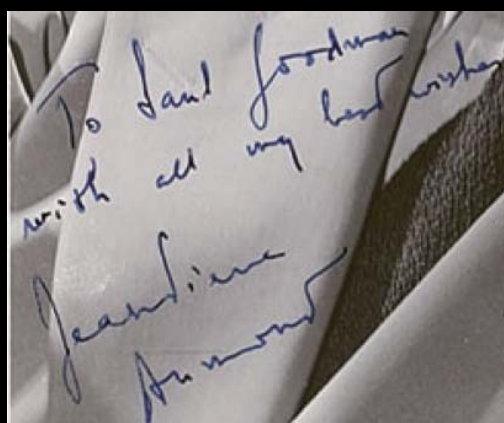 To Saul Goodman
with all my best wishes
Jean Pierre
Aumont